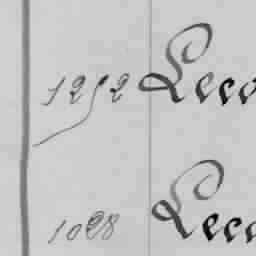 1252 Leco
1028 Leco